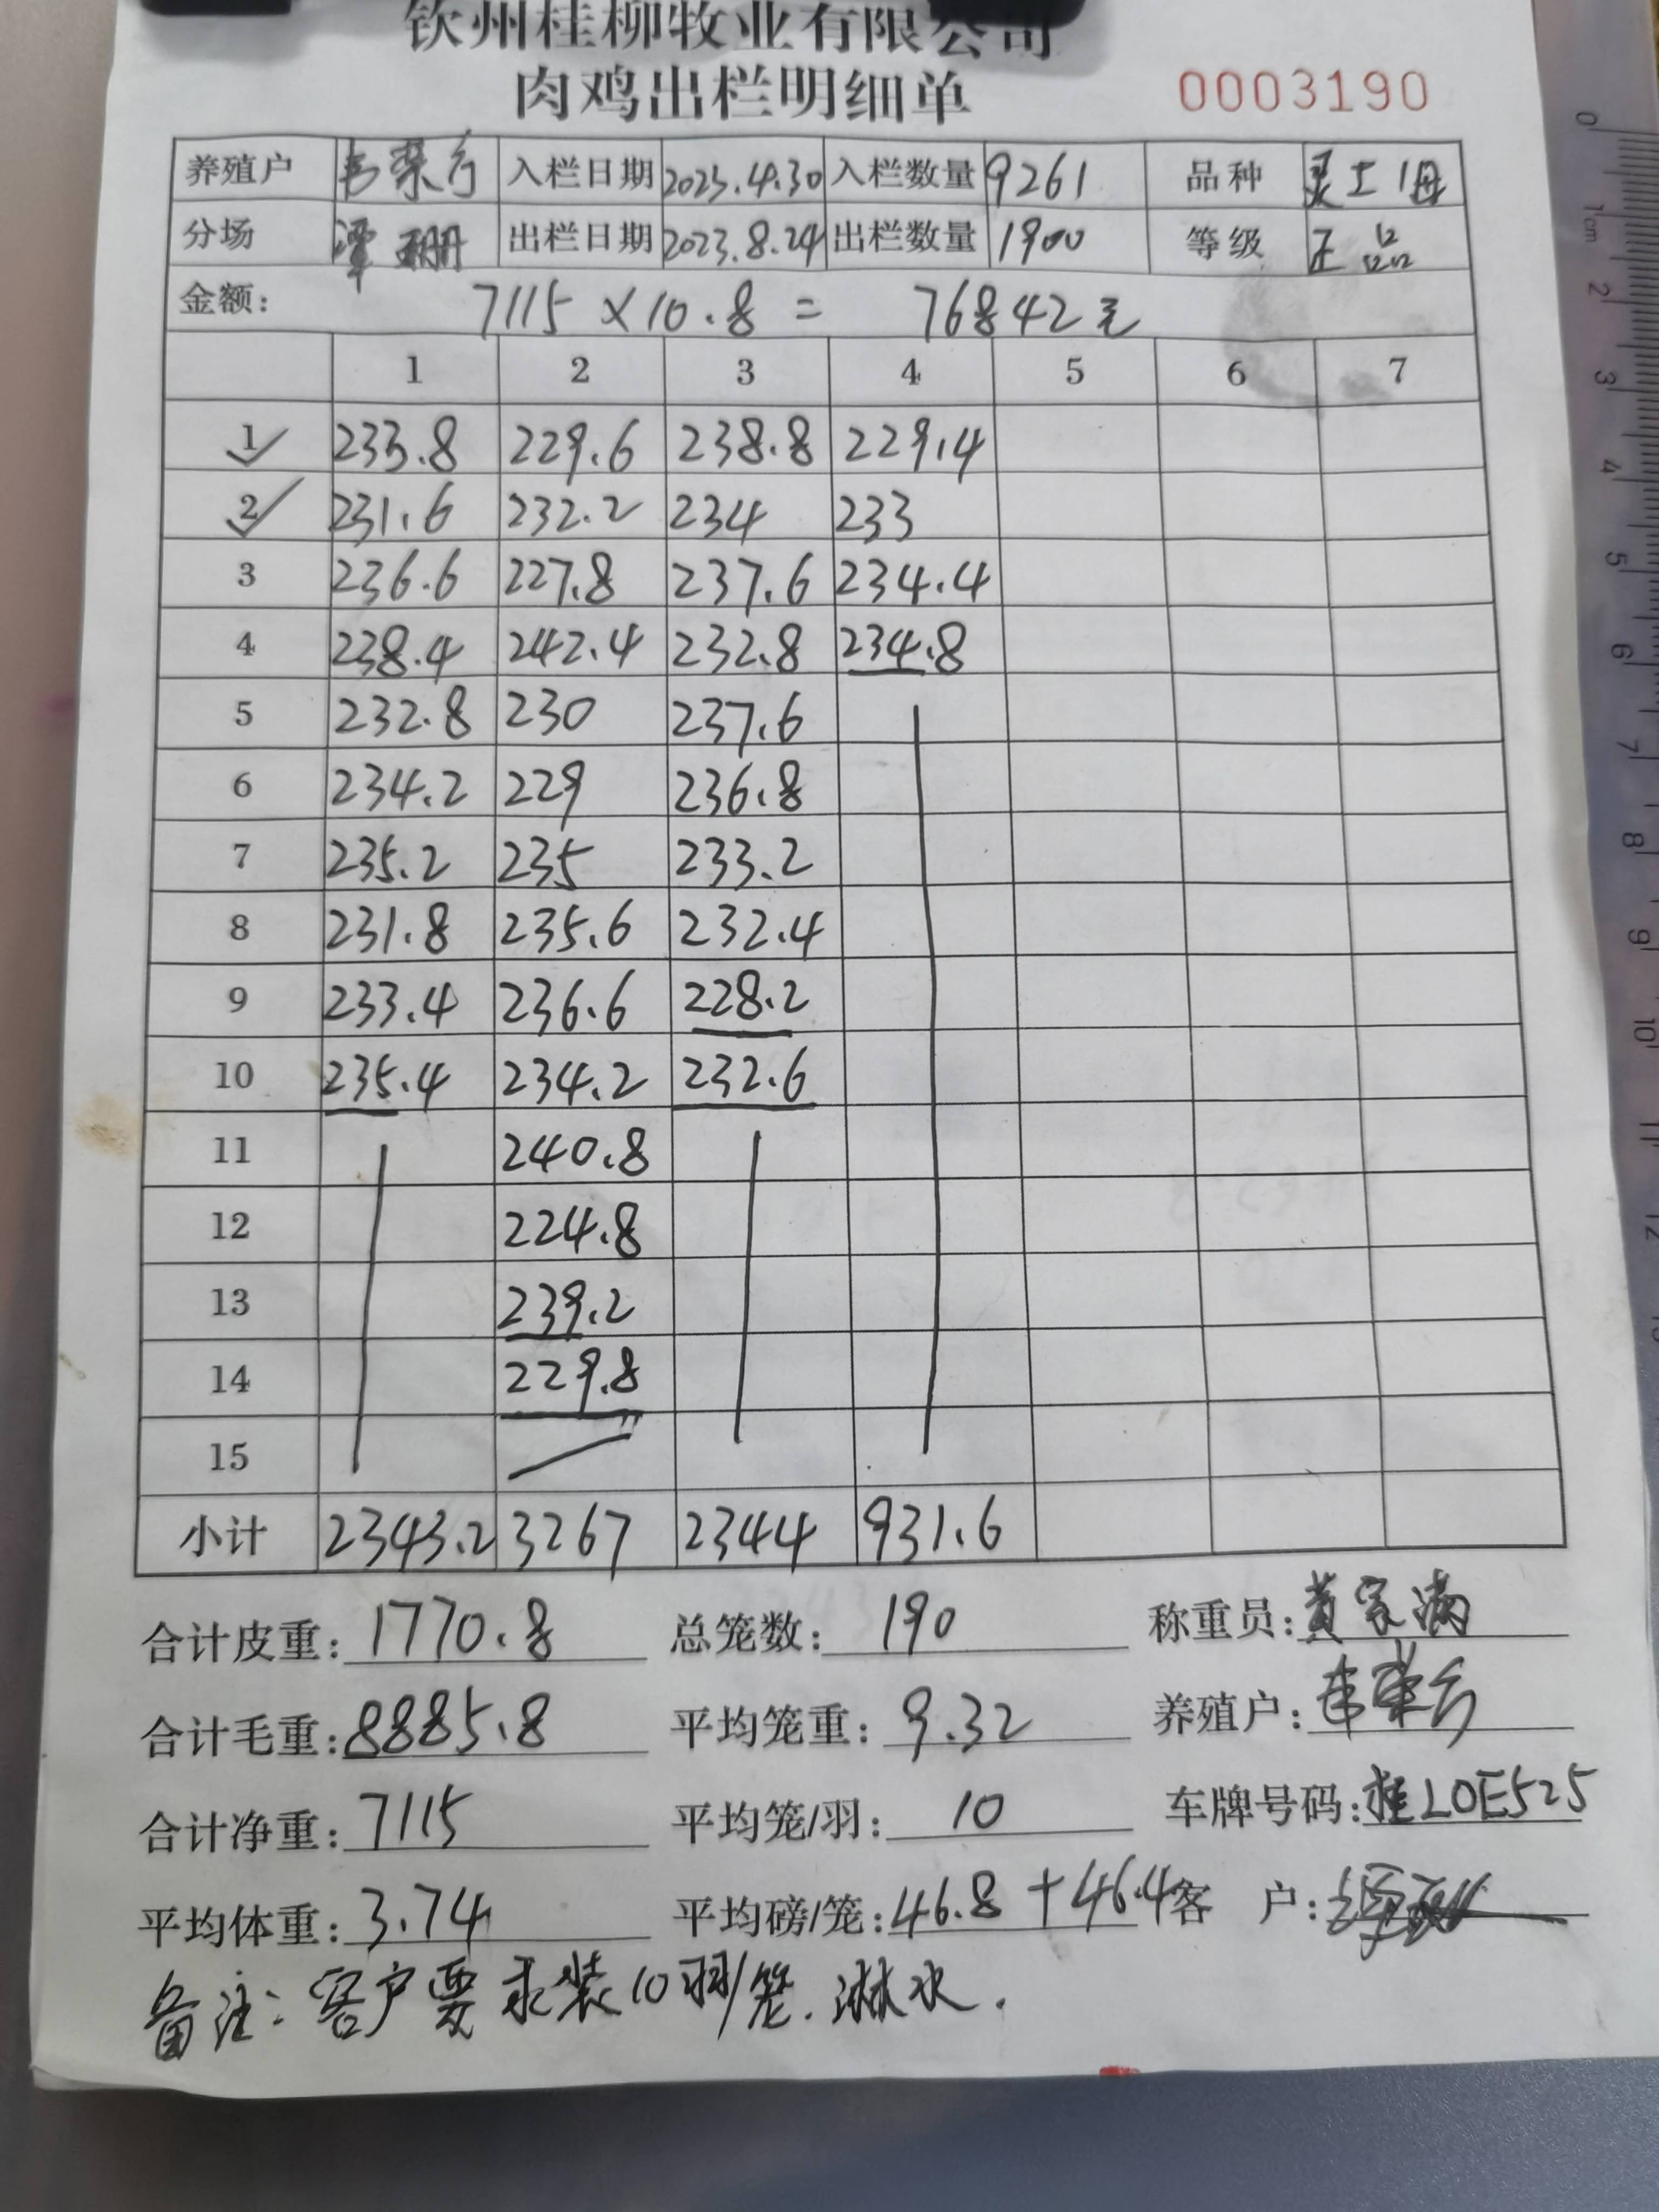 钦州桂柳牧业有限公司
肉鸡出栏明细单 0003190
养殖户 韦荣 入栏日期 2023.4.30 入栏数量 9261 品种 灵土1母
分场 谭珊 出栏日期 2023.8.24 出栏数量 1900 等级 正品
金额: 7115×10.8= 76842元
1 2 3 4 5 6 7
1 233.8 229.6 238.8 229.4
2 231.6 232.2 234 233
3 236.6 227.8 237.6 234.4
4 238.4 242.4 232.8 234.8
5 232.8 230 237.6
6 234.2 229 236.8
7 235.2 235 233.2
8 231.8 235.6 232.4
9 233.4 236.6 228.2
10 235.4 234.2 232.6
11 240.8
12 224.8
13 239.2
14 229.8
15
小计 2343.2 3267 2344 931.6
合计皮重: 1770.8 总笼数: 190 称重员: 黄家满
合计毛重: 8885.8 平均笼重: 9.32 养殖户: 韦荣
合计净重: 7115 平均笼/羽: 10 车牌号码: 桂L0E525
平均体重: 3.74 平均磅/笼: 46.8+46.4 客 户:
备注: 客户要求装10羽/笼. 淋水.
0 1cm 2 3 4 5 6 7 8 9 10 11 12